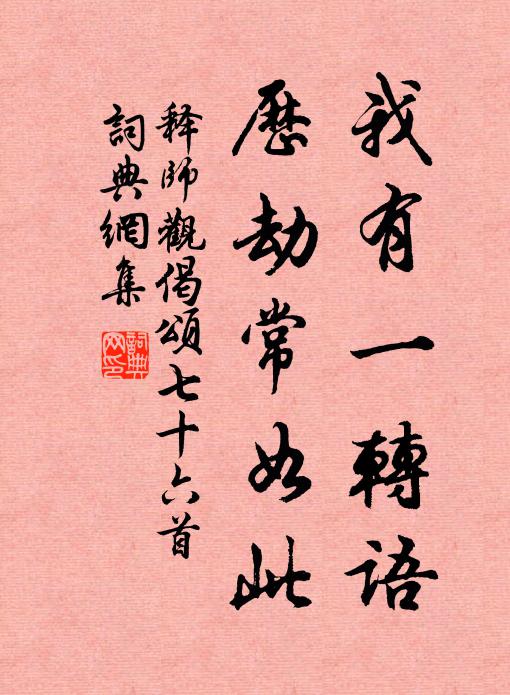 我有一轉語
歷劫常如此
釋師觀偈頌七十六首
詞典網集
詞典
网印